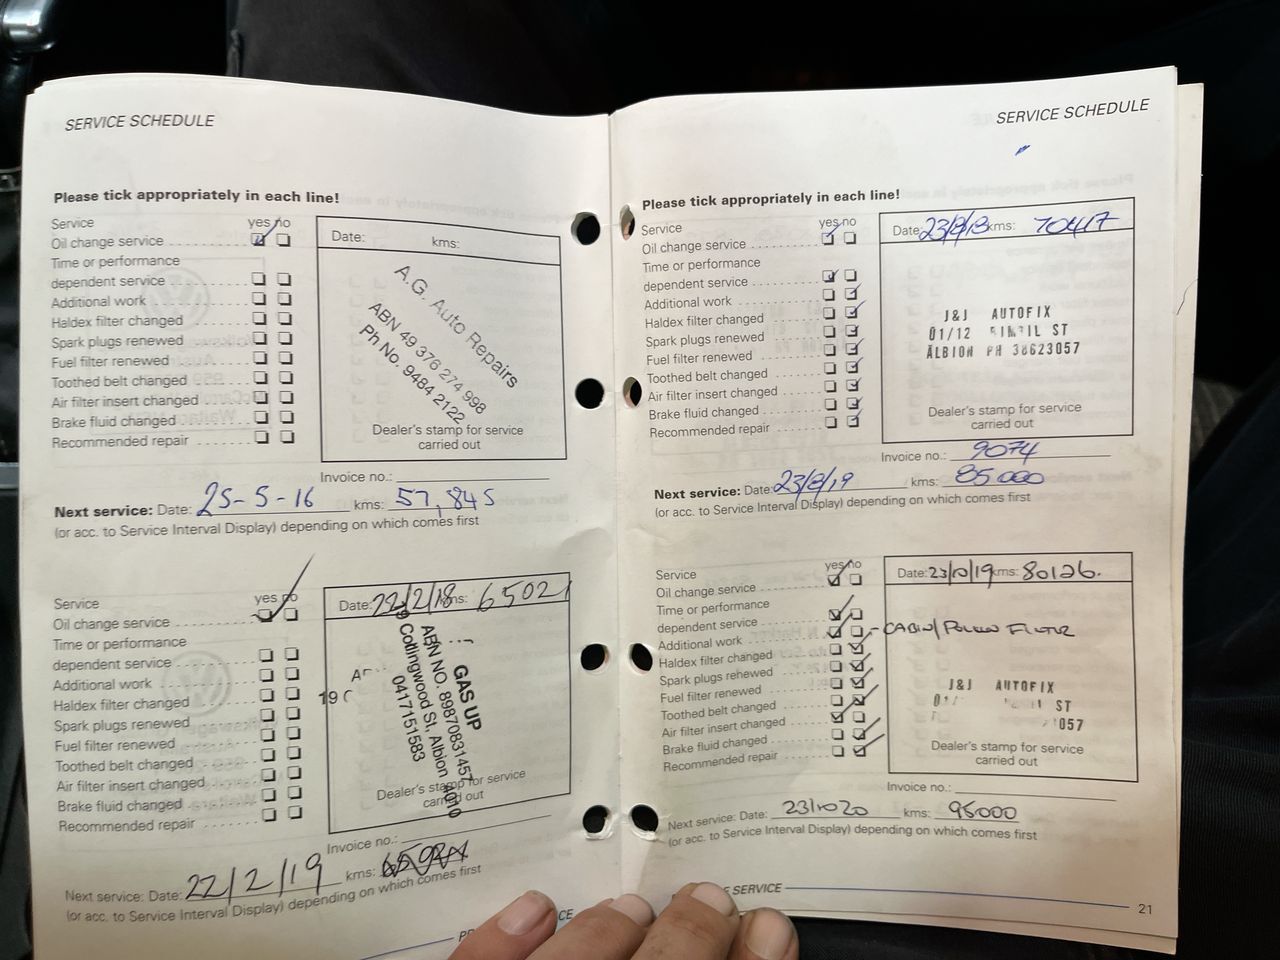 SERVICE SCHEDULE
Please tick appropriately in each line!
Service yes no
Oil change service
Time or performance
dependent service
Additional work
Haldex filter changed
Spark plugs renewed
Fuel filter renewed
Toothed belt changed
Air filter insert changed
Brake fluid changed
Recommended repair
Date: kms:
A.G. Auto Repairs
ABN 49 376 274 998
Ph No. 9484 2122
Dealer's stamp for service
carried out
Invoice no.:
Next service: Date: 25-5-16 kms: 57,845
(or acc. to Service Interval Display) depending on which comes first
Service yes no
Oil change service
Time or performance
dependent service
Additional work
Haldex filter changed
Spark plugs renewed
Fuel filter renewed
Toothed belt changed
Air filter insert changed
Brake fluid changed
Recommended repair
Date: 22/2/18 kms: 65021
GAS UP
ABN NO. 89870831457
Collingwood St, Albion 4010
0417151583
Dealer's stamp for service
carried out
Invoice no.:
Next service: Date: 22/2/19 kms:
(or acc. to Service Interval Display) depending on which comes first
SERVICE SCHEDULE
Please tick appropriately in each line!
Service yes no
Oil change service
Time or performance
dependent service
Additional work
Haldex filter changed
Spark plugs renewed
Fuel filter renewed
Toothed belt changed
Air filter insert changed
Brake fluid changed
Recommended repair
Date: 23/8/18 kms: 70417
J&J AUTOFIX
01/12 ST
ALBION PH 38623057
Dealer's stamp for service
carried out
Invoice no.: 9074
Next service: Date: 23/8/19 kms: 85000
(or acc. to Service Interval Display) depending on which comes first
Service yes no
Oil change service
Time or performance
dependent service
Additional work - CABIN/POLLEN FILTER
Haldex filter changed
Spark plugs renewed
Fuel filter renewed
Toothed belt changed
Air filter insert changed
Brake fluid changed
Recommended repair
Date: 23/10/19 kms: 80126.
J&J AUTOFIX
ST
057
Dealer's stamp for service
carried out
Invoice no.:
Next service: Date: 23/10/20 kms: 95000
(or acc. to Service Interval Display) depending on which comes first
SERVICE
21